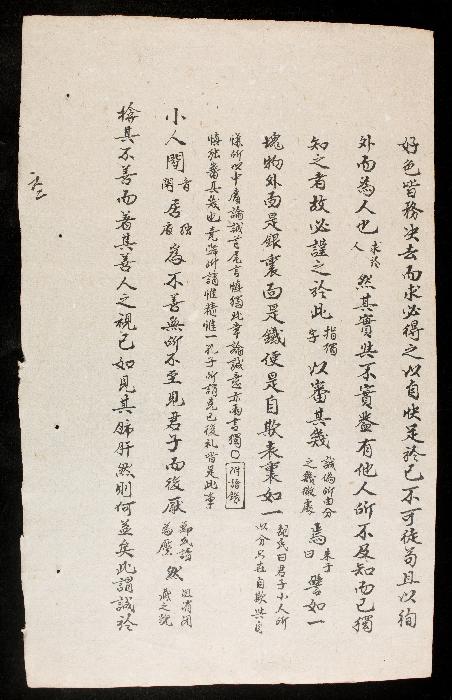 好色皆務決去而求必得之以自快足於己不可徒苟且以徇
外而為人也求於人然其實與不實蓋有他人所不及知而己獨
知之者故必謹之於此指獨字以審其幾誠偽所由分之幾微處焉朱子曰譬如一
塊物外面是銀裏面是鐵便是自欺表裏如一
記氏曰君子小人所以分只在自欺與自
慊所以中庸論誠首尾言慎獨此章論誠意亦兩言獨○附語錄
慎獨審其幾也堯舜所謂惟精惟一孔子所謂克己復礼皆是此事
小人閒音閑居獨居為不善無所不至見君子而後厭鄭氏讀為黶然沮消閉藏之貌
揜其不善而著其善人之視己如見其肺肝然則何益矣此謂誠於